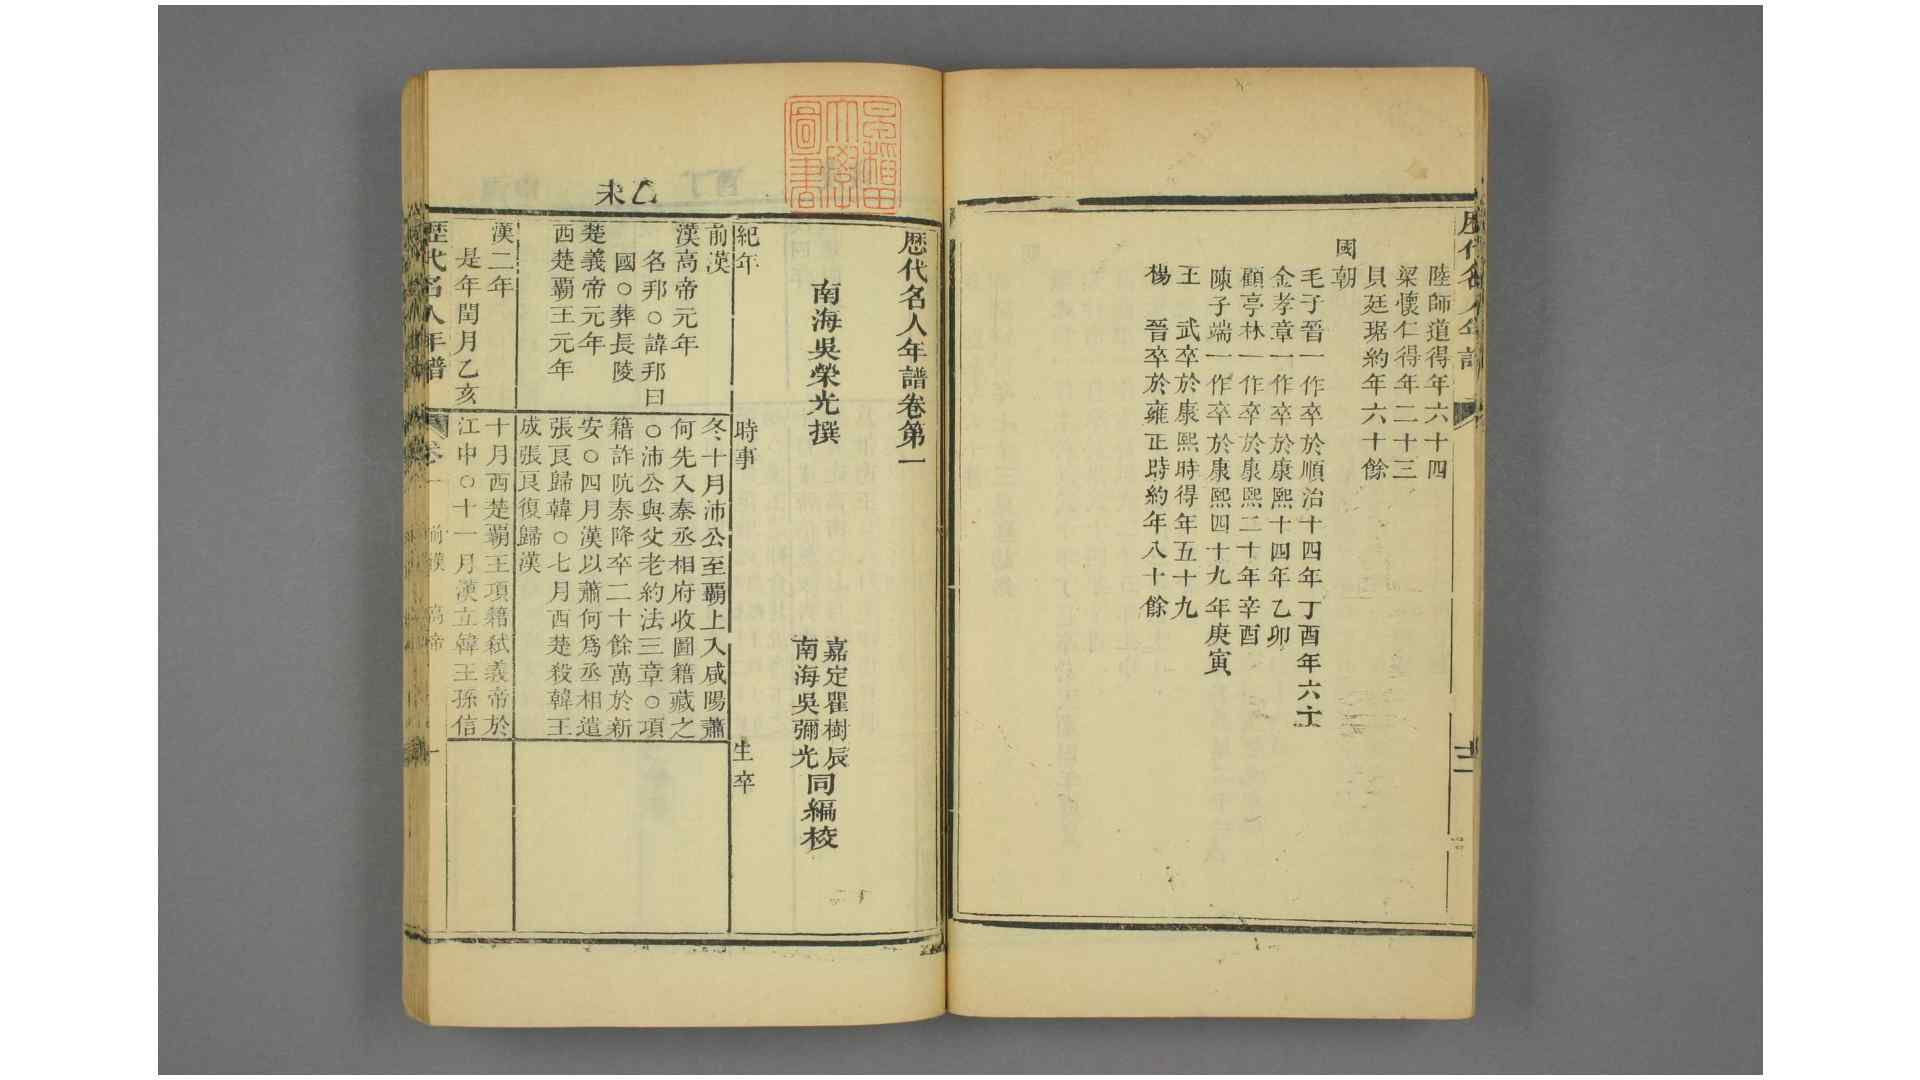 歷代名人年譜
陸師道得年六十四
梁懷仁得年二十三
貝廷琚約年六十餘
國朝
毛子晉一作卒於順治十四年丁酉年六十
金孝章一作卒於康熙十四年乙卯
顧亭林一作卒於康熙二十年辛酉
陳子端一作卒於康熙四十九年庚寅
王武卒於康熙時得年五十九
楊晉卒於雍正時約年八十餘
早稻田
大學
圖書
歷代名人年譜卷第一
南海吳榮光撰
嘉定瞿樹辰
南海吳彌光
同編校
紀年
時事
生卒
乙未
前漢
漢高帝元年
名邦○諱邦曰
國○葬長陵
楚義帝元年
西楚霸王元年
冬十月沛公至霸上入咸陽蕭
何先入秦丞相府收圖籍藏之
○沛公與父老約法三章○項
籍詐阬秦降卒二十餘萬於新
安○四月漢以蕭何爲丞相遣
張良歸韓○七月西楚殺韓王
成張良復歸漢
漢二年
是年閏月乙亥
十月西楚霸王項籍弒義帝於
江中○十一月漢立韓王孫信
歷代名人年譜
卷一
前漢
高帝
一